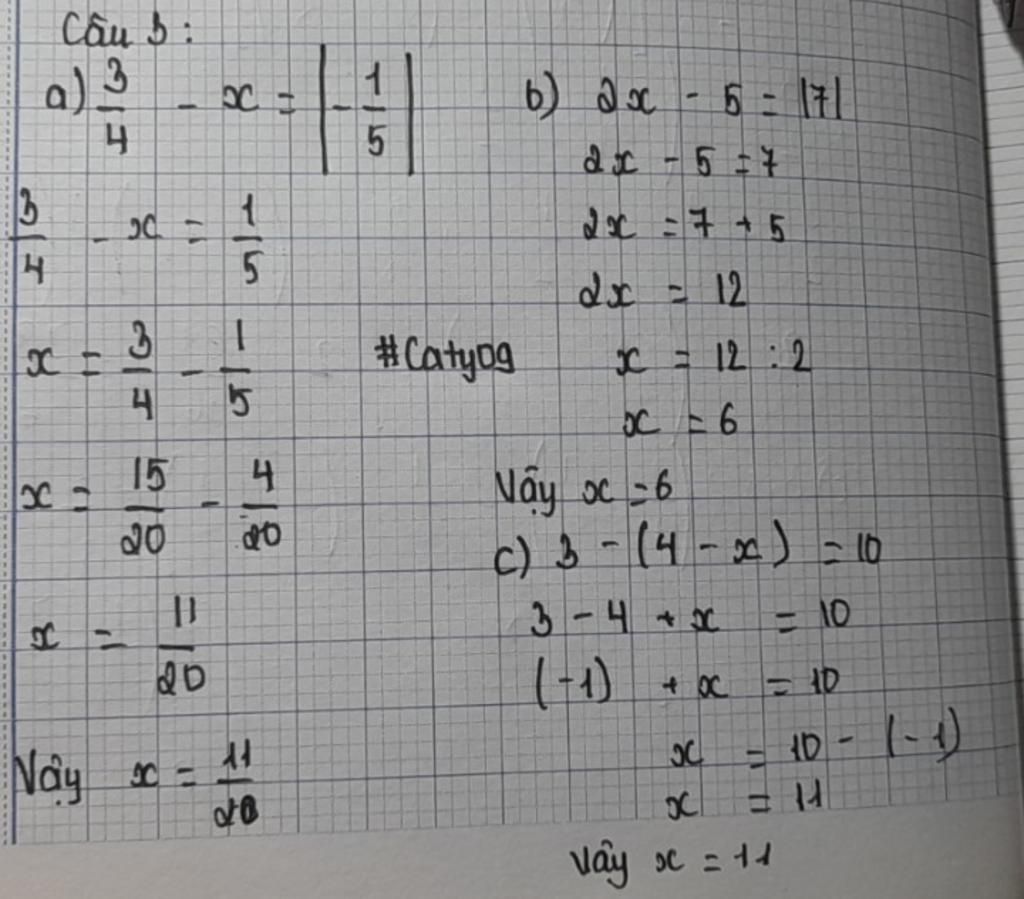 Câu 3:
a) 3/4 - x = |-1/5|
3/4 - x = 1/5
x = 3/4 - 1/5
x = 15/20 - 4/20
x = 11/20
Vậy x = 11/20
#Caty09
b) 2x - 5 = |7|
2x - 5 = 7
2x = 7 + 5
2x = 12
x = 12 : 2
x = 6
Vậy x = 6
c) 3 - (4 - x) = 10
3 - 4 + x = 10
(-1) + x = 10
x = 10 - (-1)
x = 11
Vậy x = 11